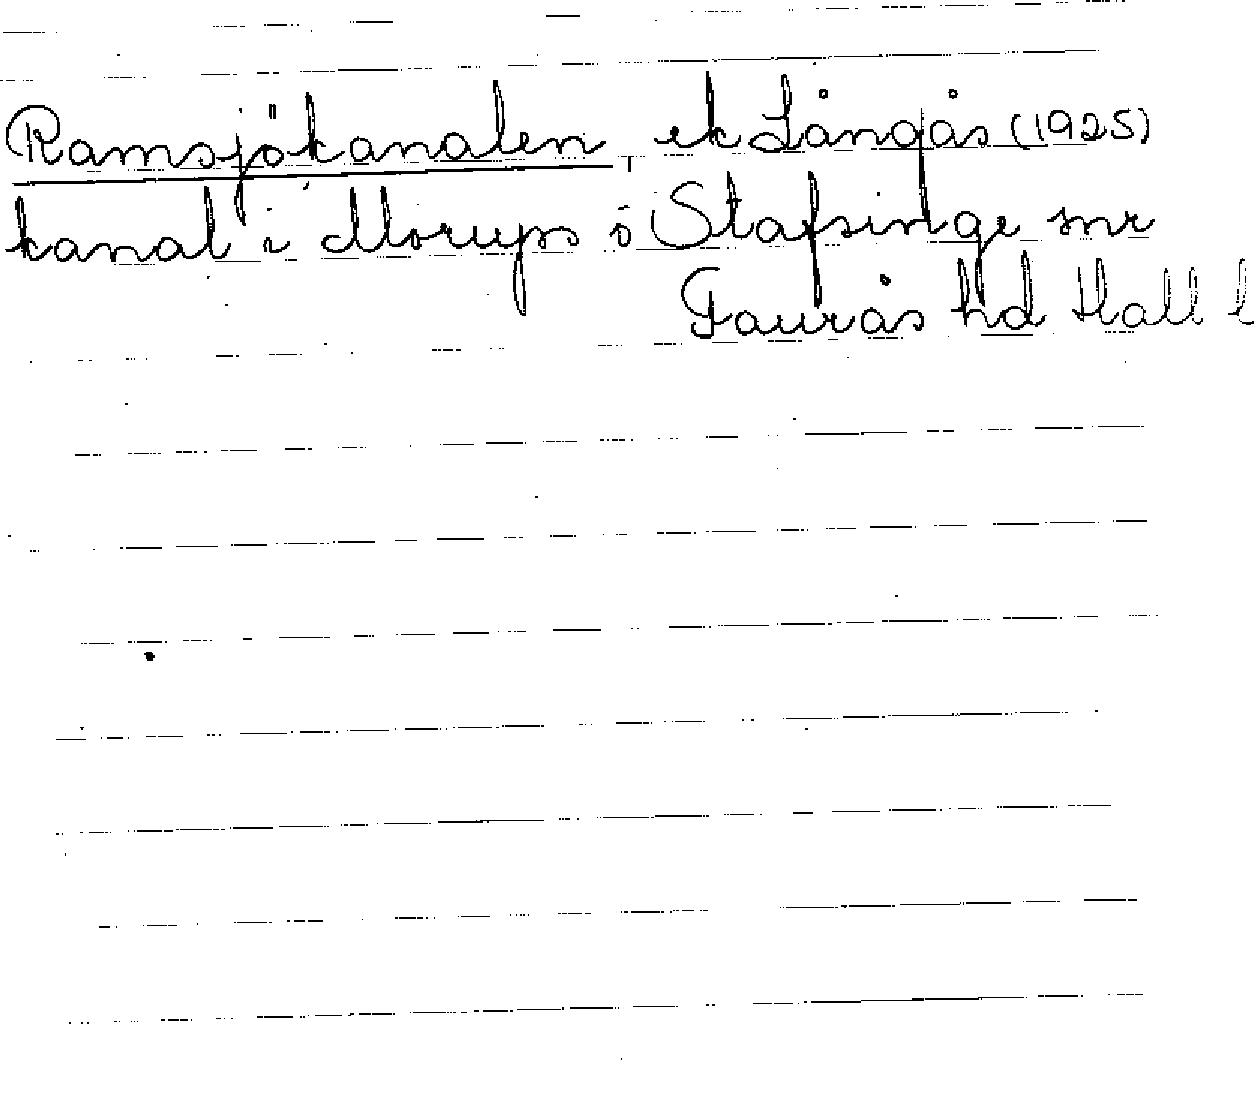 Ramsjökanalen ek Långås (1925)
kanal i Morups o Stafsinge snr
Faurås hd Hall l